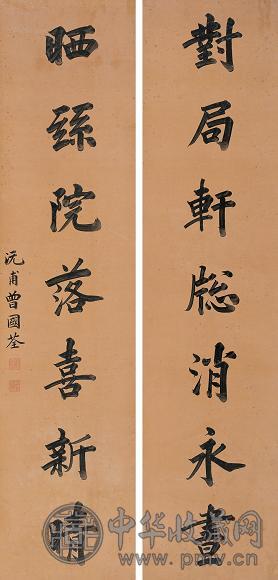 對局軒牕消永晝
晒絲院落喜新晴
沅甫曾國荃
中华收藏网
www.pmv.cn